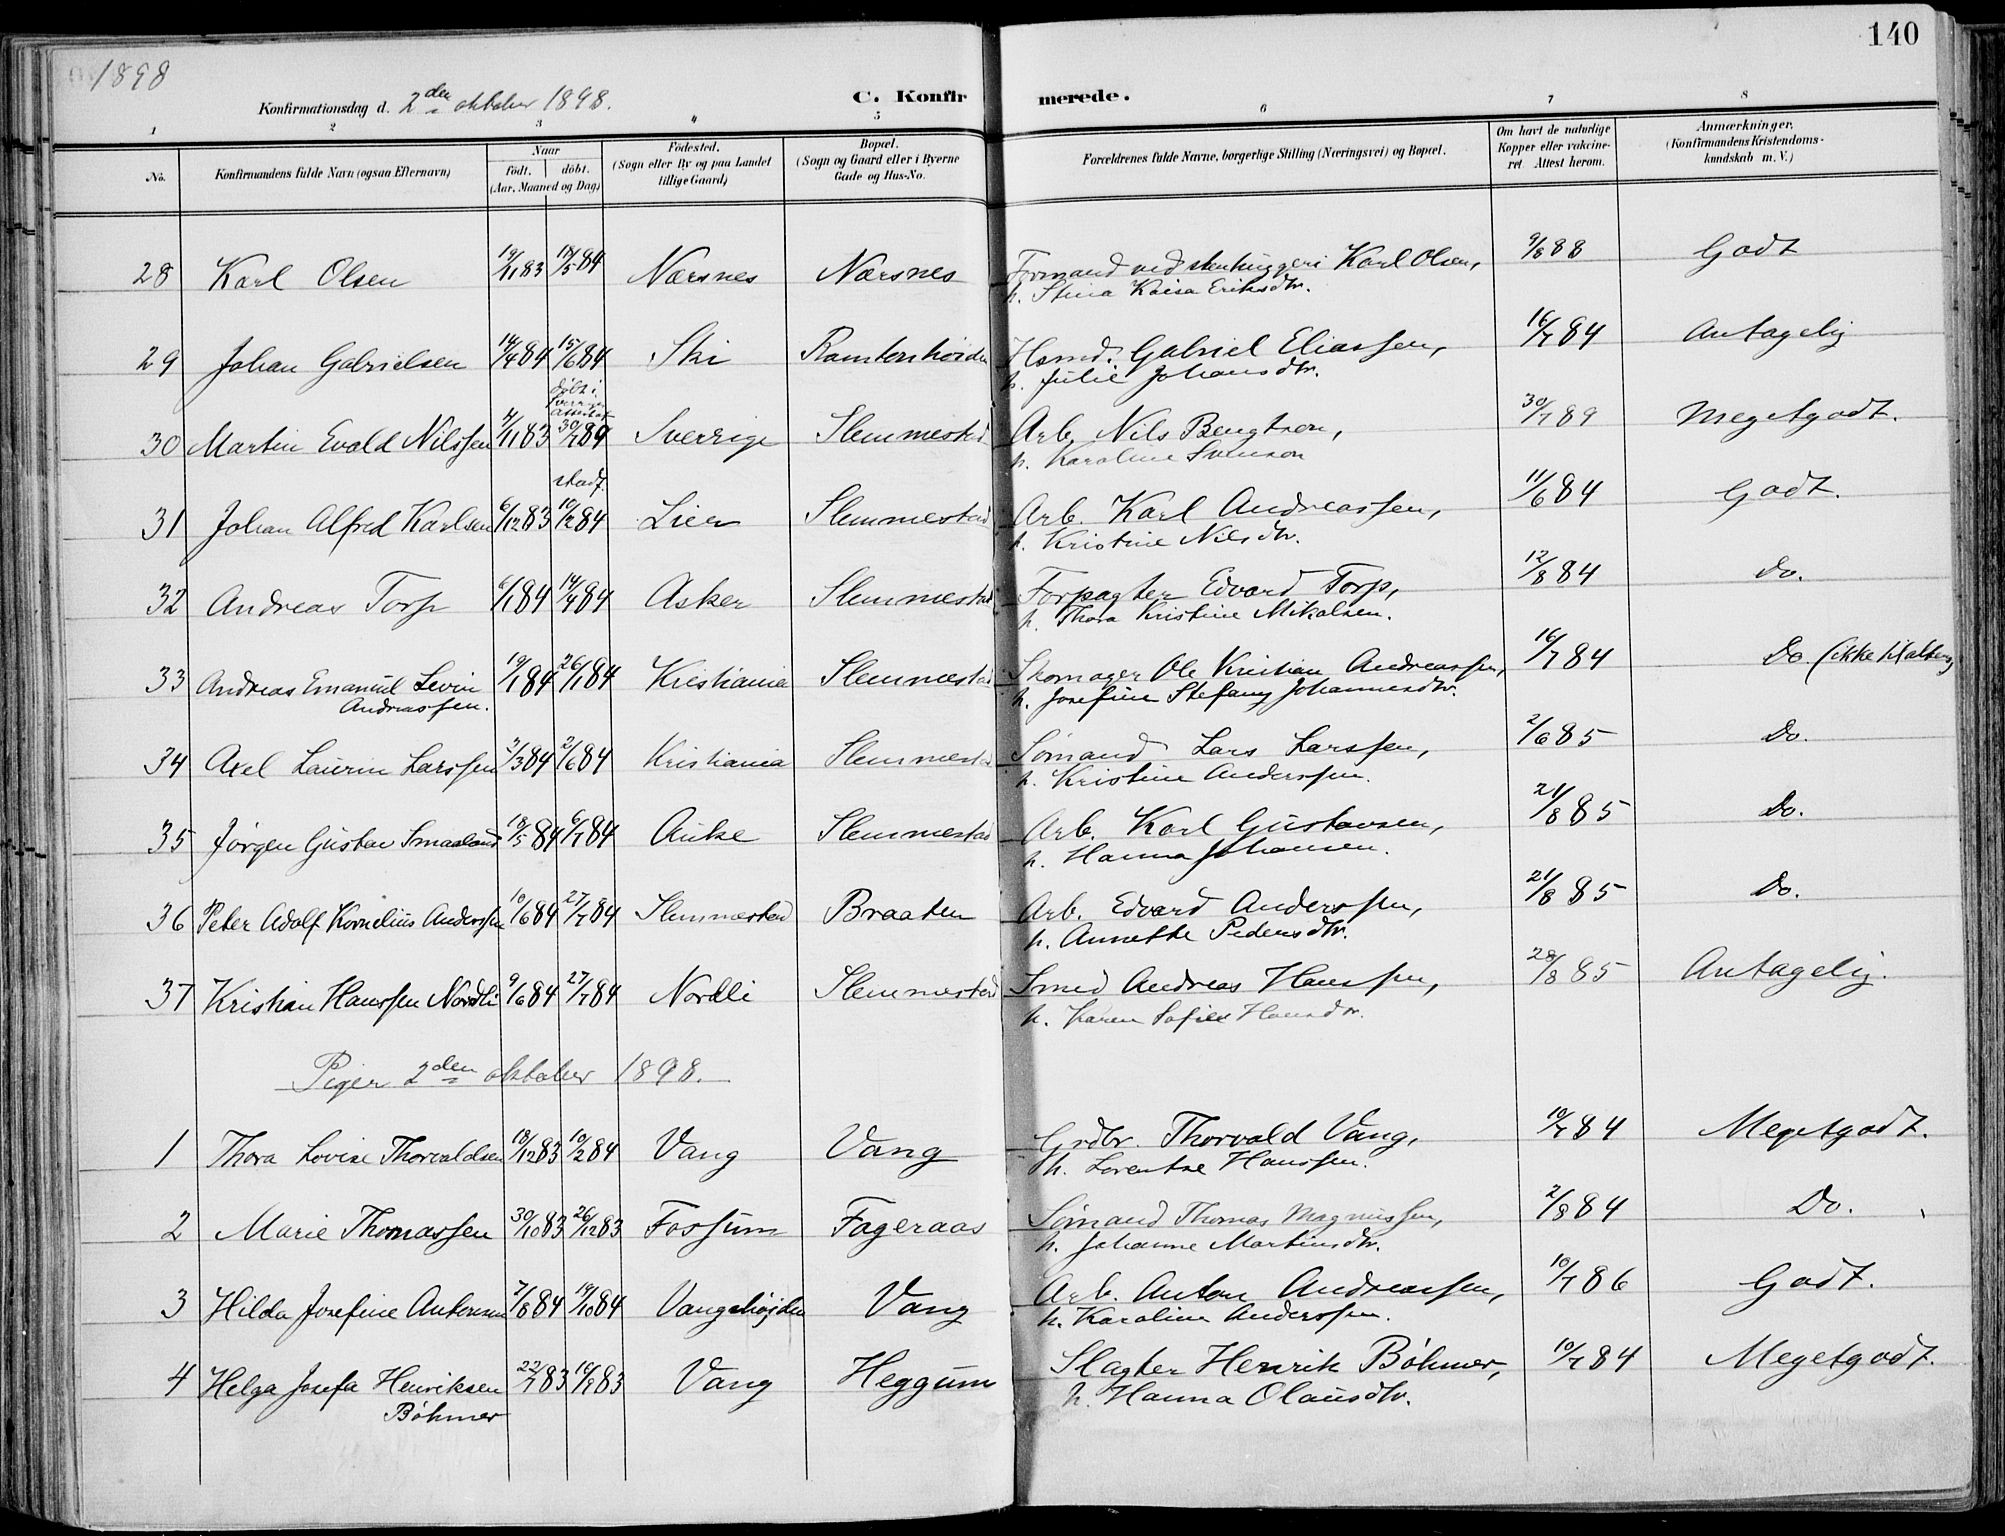 140
1898
Konfirmationsdag d. 2den oktober 1898.
C. Konfir merede.
1 2 3 4 5 6 7 8
No.
Konfirmandens fulde Navn (ogsaa Efternavn)
Naar
født. døbt.
(Aar, Maaned og Dag)
Fødested.
(Sogn eller By og paa Landet
tillige Gaard)
Bopæl.
(Sogn og Gaard eller i Byerne
Gade og Hus-No.
Forældrenes fulde Navne, borgerlige Stilling (Næringsvei) og Bopæl.
Om havt de naturlige
Kopper eller vakcine-
ret. Attest herom.
Anmærkninger.
(Konfirmandens Kristendoms-
kundskab m. V.)
28 Karl Olsen 19/11 83 18/5 84 Nærsnes Nærsnes Formand ved stenhuggeri Karl Olsen, 9/8 88 Godt
h. Stina Kaisa Eriksdtr.
29 Johan Gabrielsen 14/4 84 15/6 84 Ski Ramtonhöiden Hsmd. Gabriel Eliassen, 16/7 84 Antagelig
h. Julie Johansdtr.
døbt i
Sverige
attesteret
30 Martin Evald Nilssen 4/11 83 30/7 89 Sverrige Slemmestad Arb. Nils Bengtson, 30/7 89 Megetgodt.
h. Karoline Svenson
stadf.
31 Johan Alfred Karlsen 6/12 83 10/2 84 Lier Slemmestad Arb. Karl Andreassen, 11/6 84 Godt.
h. Kristine Nilsdtr.
32 Andreas Torp 6/1 84 14/4 84 Asker Slemmestad Forpagter Edvard Torp, 12/8 84 Do.
h. Thora Kristine Mikalsen.
33 Andreas Emanuel Levin 19/1 84 26/1 84 Kristiania Slemmestad Skomager Ole Kristian Andreassen, 16/7 84 Do (ikke til alters)
Andreassen. h. Josefine Stefany Johannesdtr.
34 Axel Laurin Larssen 3/3 84 2/6 84 Kristiania Slemmestad Sømand Lars Larssen, 2/6 85 Do.
h. Kristine Anderssen.
35 Jørgen Gustav Smaaland 18/5 84 6/7 84 Auke Slemmestad Arb. Karl Gustavsen, 21/8 85 Do.
h. Hanna Johansen.
36 Peter Adolf Kornelius Anderssen 10/6 84 27/7 84 Slemmestad Braaten Arb. Edvard Anderssen, 21/8 85 Do.
h. Annette Pedersdtr.
37 Kristian Hanssen Nordli 9/6 84 27/7 84 Nordli Slemmestad Smed Andreas Hanssen, 28/8 85 Antagelig.
h. Karen Sofie Hansdtr.
Piger 2den oktober 1898.
1 Thora Lovise Thorvaldsen 18/12 83 10/2 84 Vang Vang Grdbr. Thorvald Vang, 10/7 84 Megetgodt.
h. Lorentse Hanssen.
2 Marie Thomassen 30/10 83 26/12 83 Fossum Fageraas Sømand Thomas Magnussen, 2/8 84 Do.
h. Johanne Martinsdtr.
3 Hilda Josefine Antonsen 7/8 84 19/10 84 Vangshøiden Vang Arb. Anton Andreassen, 10/7 86 Godt.
h. Karoline Anderssen.
4 Helga Josefa Henriksen 22/7 83 16/9 83 Vang Heggum Slagter Henrik Bøhmer, 10/7 84 Megetgodt.
Bøhmer h. Hanna Olausdtr.